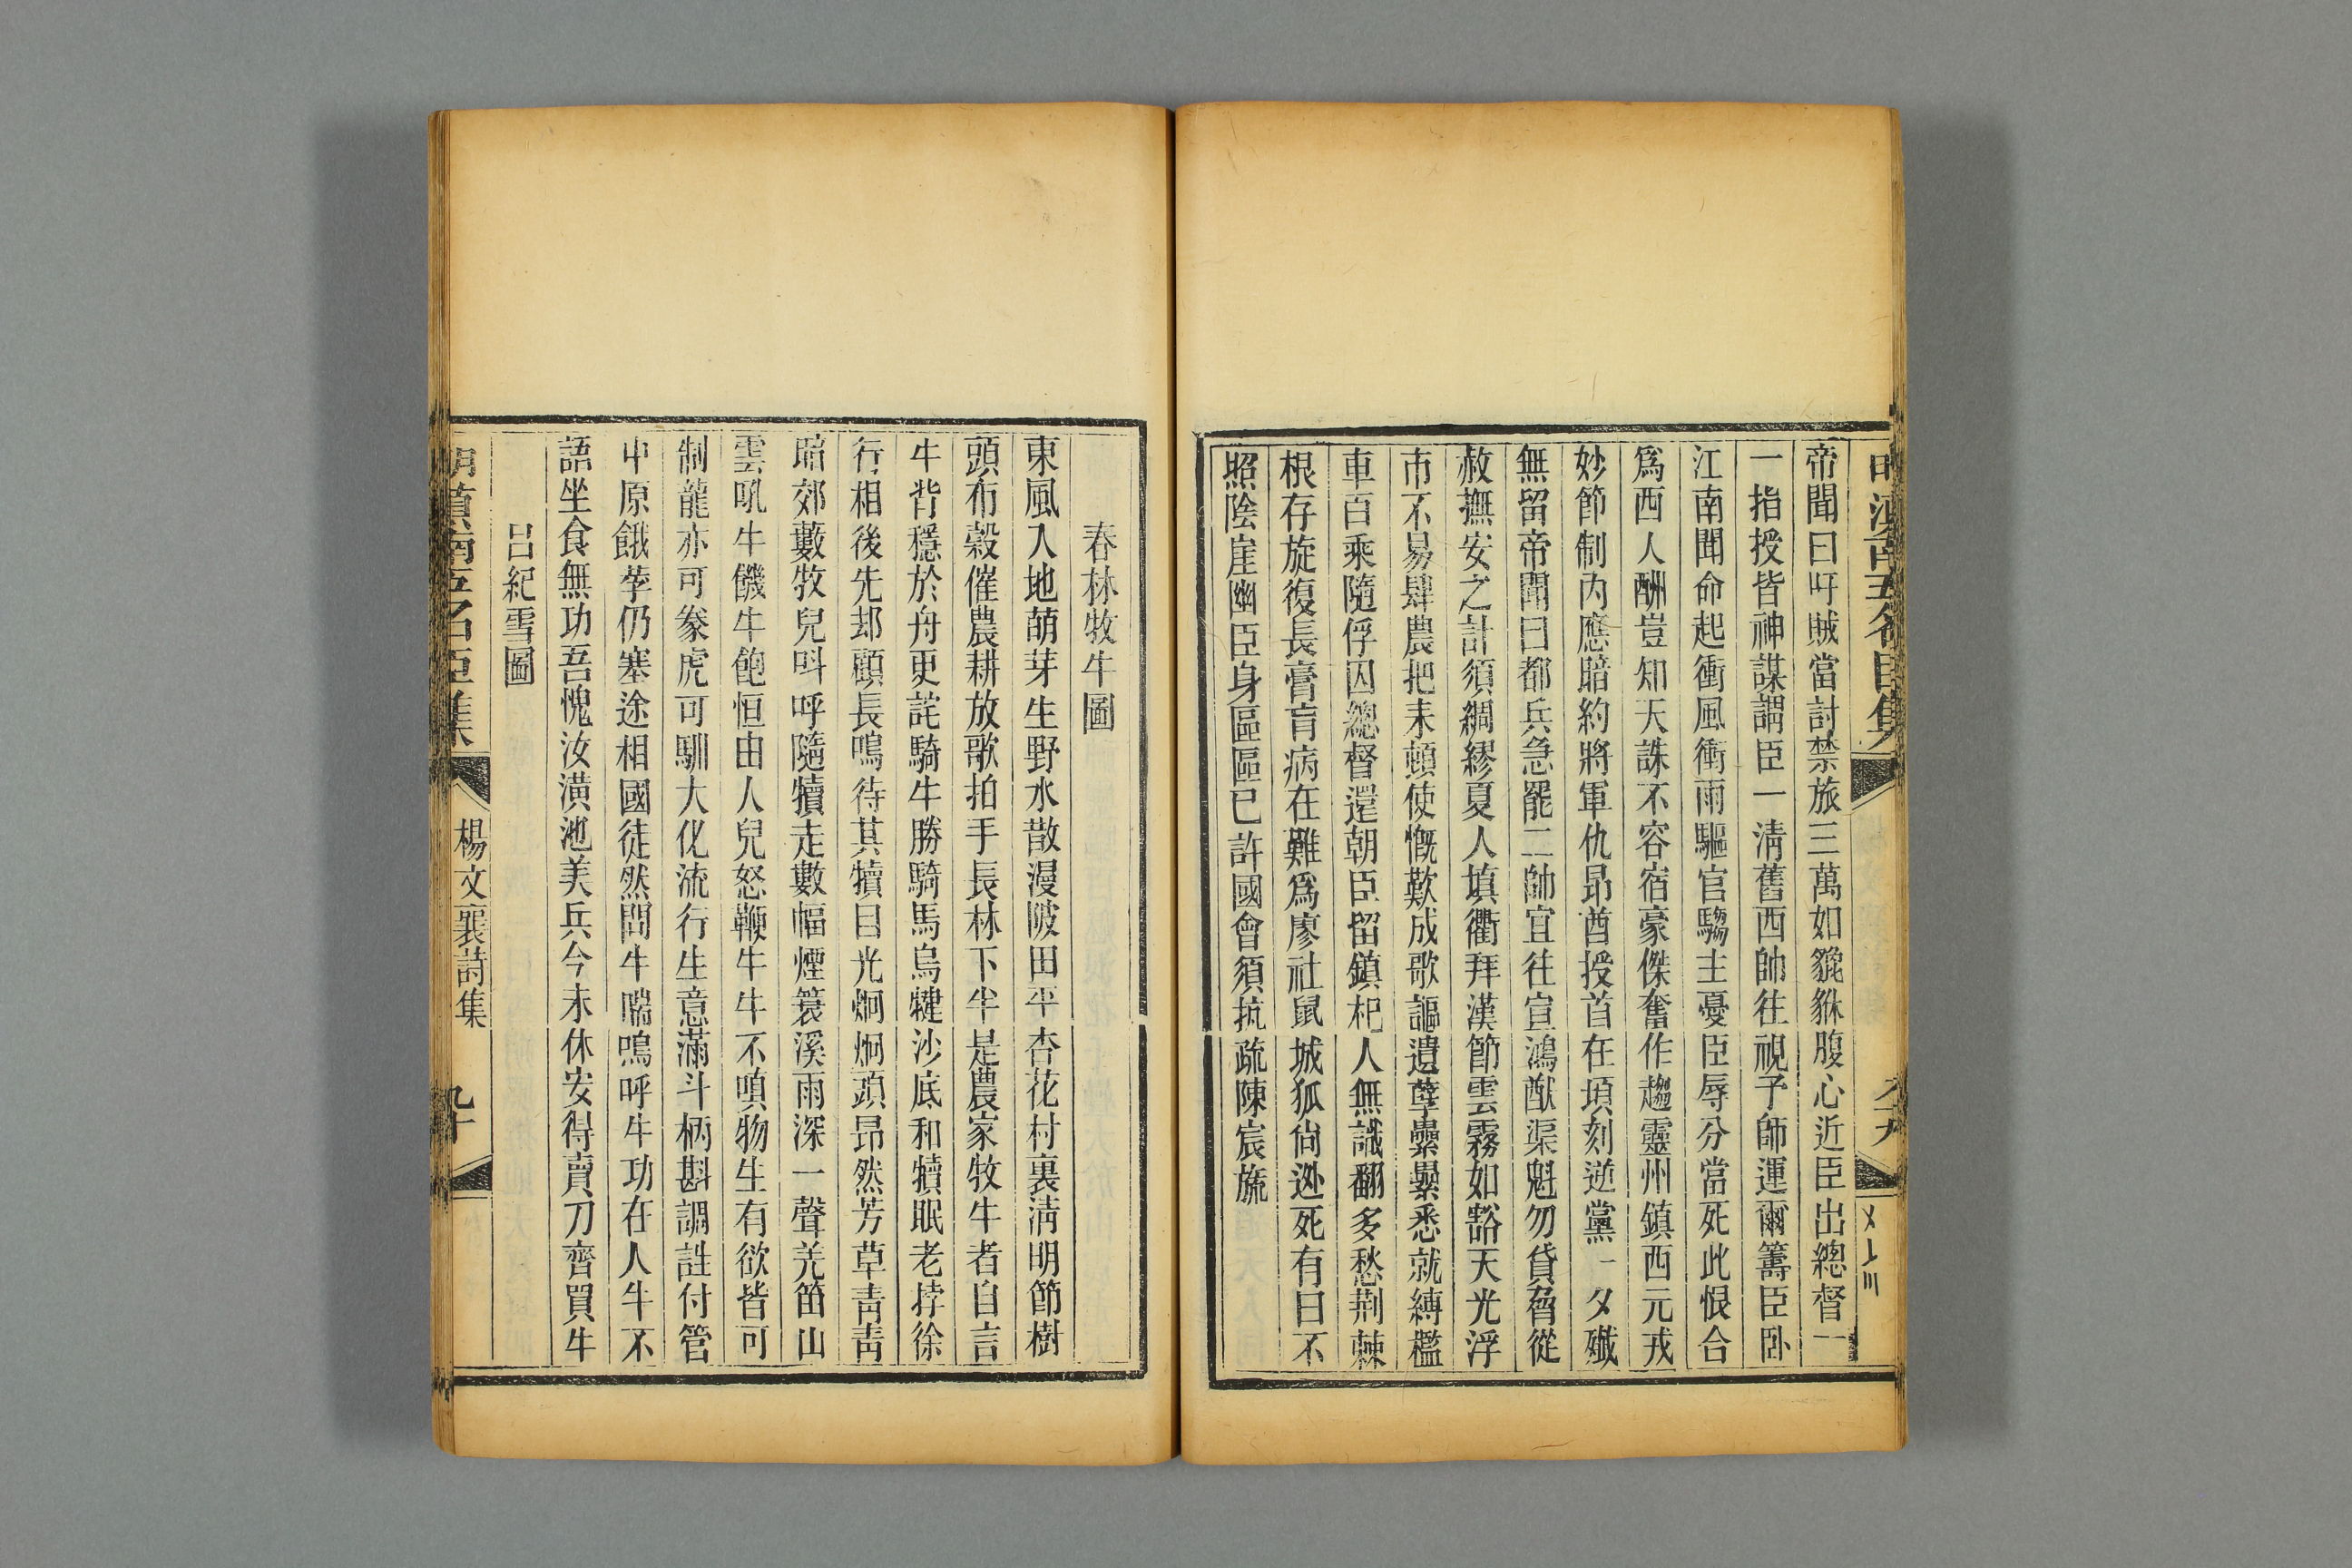 帝聞曰吁賊當討禁旅三萬如貔貅腹心近臣出總督一
一指授皆神謀謂臣一清舊西帥往視予師運爾籌臣臥
江南聞命起衝風衝雨驅官騶主憂臣辱分當死此恨合
爲西人酬豈知天誅不容宿豪傑奮作趨靈州鎮西元戎
妙節制內應賠約將軍仇昂酋授首在頃刻逆黨一夕殲
無留帝聞曰都兵急罷二帥宜往宣鴻猷渠魁勿貸脅從
赦撫安之計須綢繆夏人填衢拜漢節雲霧如豁天光浮
市不易肆農把耒頓使慨歎成歌謳遺孽纍纍悉就縛檻
車百乘隨俘囚總督還朝臣留鎮杞人無識翻多愁荆棘
根存旋復長膏肓病在難爲廖社鼠城狐尙逊死有日不
照陰崖幽臣身區區已許國會須抗疏陳宸旒
春林牧牛圖
東風入地萌芽生野水散漫陂田平杏花村裏清明節樹
頭布穀催農耕放歌拍手長林下半是農家牧牛者自言
牛背穩於舟更詫騎牛勝騎馬烏犍沙底和犢眠老㹀徐
行相後先却顧長鳴待其犢目光炯炯頭昂然芳草靑靑
暗郊藪牧兒呌呼隨犢走數幅煙簑溪雨深一聲羌笛山
雲吼牛饑牛飽恒由人兒怒鞭牛牛不嗔物生有欲皆可
制龍亦可豢虎可馴大化流行生意滿斗柄斟調詿付管
中原餓莩仍塞途相國徒然問牛喘嗚呼牛功在人牛不
語坐食無功吾愧汝潢池美兵今未休安得賣刀齊買牛
呂紀雪圖
楊文襄詩集